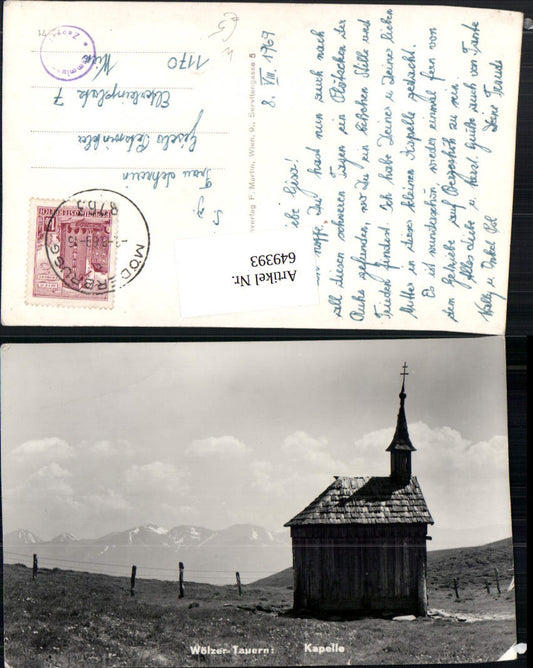 8. VIII. 1969
Liebe Gisa!
Ich hoffe, Du hast nun auch nach
all diesen schweren Tagen ein Plätzchen der
Ruhe gefunden, wo Du ein bißchen Stille und
Frieden findest. Ich habe Deiner u. Deiner lieben
Mutter in dieser kleinen Kapelle gedacht.
Es ist wunderschön wieder einmal fern von
dem Getriebe auf Bergeshöh zu sein.
Alles Liebe u. herzl. Grüße auch von Tante
Willy u. Onkel Poldl Deine Traude
Verlag F. Martin, Wien, 9., Servitengasse 5
Frau
Gisela
Elterleinplatz 7
1170 Wien
MÖDERBRUGG
8763
Artikel Nr.
649393
Wölzer-Tauern: Kapelle